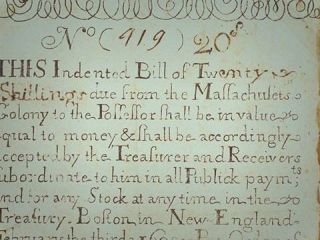 No (919) 20s
THIS Indented Bill of Twenty
Shillings due from the Massachusets
Colony to the Possessor shall be in value
equal to money & shall be accordingly
accepted by the Treasurer and Receivers
subordinate to him in all Publick paymts
and for any Stock at any time in the
Treasury. Boston in New England
February the third 1690 By Order of